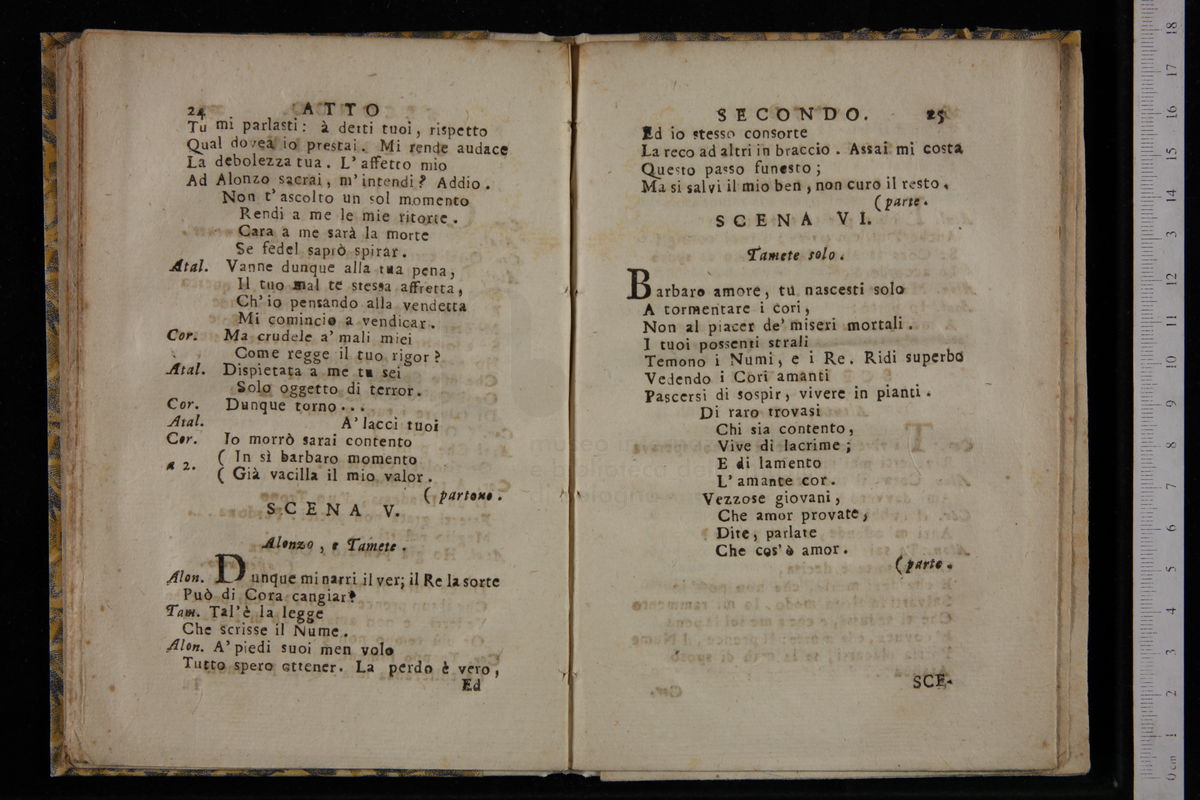 24 ATTO
Tu mi parlasti: à detti tuoi, rispetto
Qual dovea io prestai. Mi rende audace
La debolezza tua. L'affetto mio
Ad Alonzo sacrai, m'intendi? Addio.
Non t'ascolto un sol momento
Rendi a me le mie ritorte.
Cara a me sarà la morte
Se fedel saprò spirar.
Atal. Vanne dunque alla tua pena,
Il tuo mal te stessa affretta,
Ch'io pensando alla vendetta
Mi comincio a vendicar.
Cor. Ma crudele a' mali miei
Come regge il tuo rigor?
Atal. Dispietata a me tu sei
Solo oggetto di terror.
Cor. Dunque torno...
Atal. A' lacci tuoi
Cor. Io morrò sarai contento
a 2. ( In sì barbaro momento
( Già vacilla il mio valor.
( partono.
SCENA V.
Alonzo, e Tamete.
Alon. Dunque mi narri il ver; il Re la sorte
Può di Cora cangiar?
Tam. Tal'è la legge
Che scrisse il Nume.
Alon. A' piedi suoi men volo
Tutto spero ottener. La perdo è vero,
Ed
SECONDO. 25
Ed io stesso consorte
La reco ad altri in braccio. Assai mi costa
Questo passo funesto;
Ma si salvi il mio ben, non curo il resto.
( parte.
SCENA VI.
Tamete solo.
Barbaro amore, tu nascesti solo
A tormentare i cori,
Non al piacer de' miseri mortali.
I tuoi possenti strali
Temono i Numi, e i Re. Ridi superbo
Vedendo i Cori amanti
Pascersi di sospir, vivere in pianti.
Di raro trovasi
Chi sia contento,
Vive di lacrime;
E di lamento
L'amante cor.
Vezzose giovani,
Che amor provate,
Dite, parlate
Che cos'è amor.
( parte.
SCE-